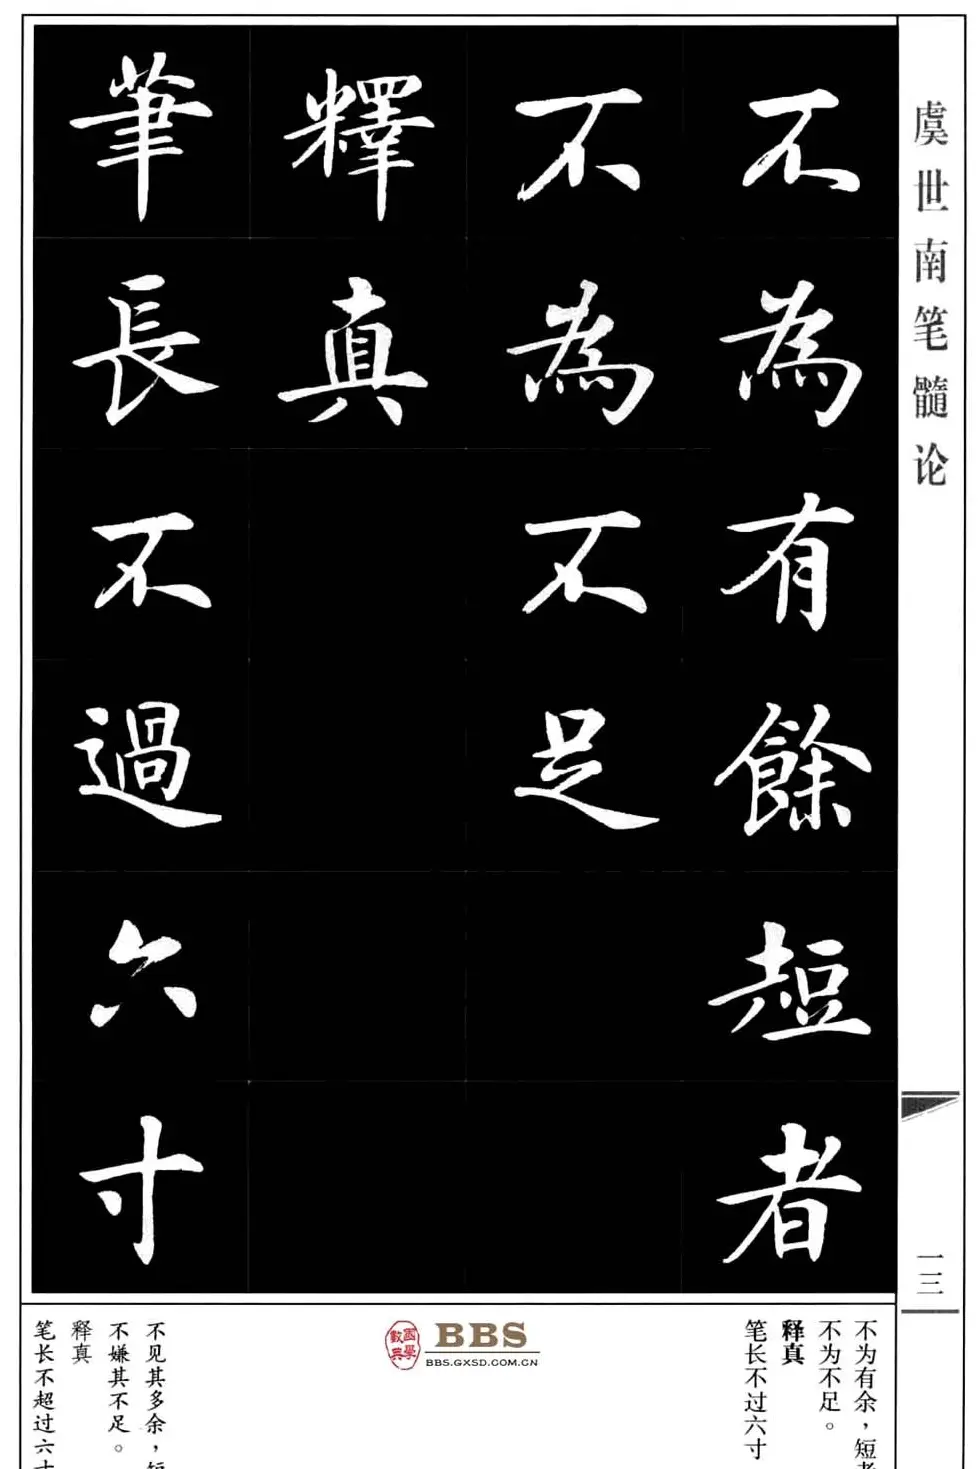 虞世南笔髓论
一三
不為有餘短者
不為不足
釋真
筆長不過六寸
不为有余，短者
不为不足。
释真
笔长不过六寸
國學
數典
BBS
BBS.GXSD.COM.CN
不见其多余，短
不嫌其不足。
释真
笔长不超过六寸